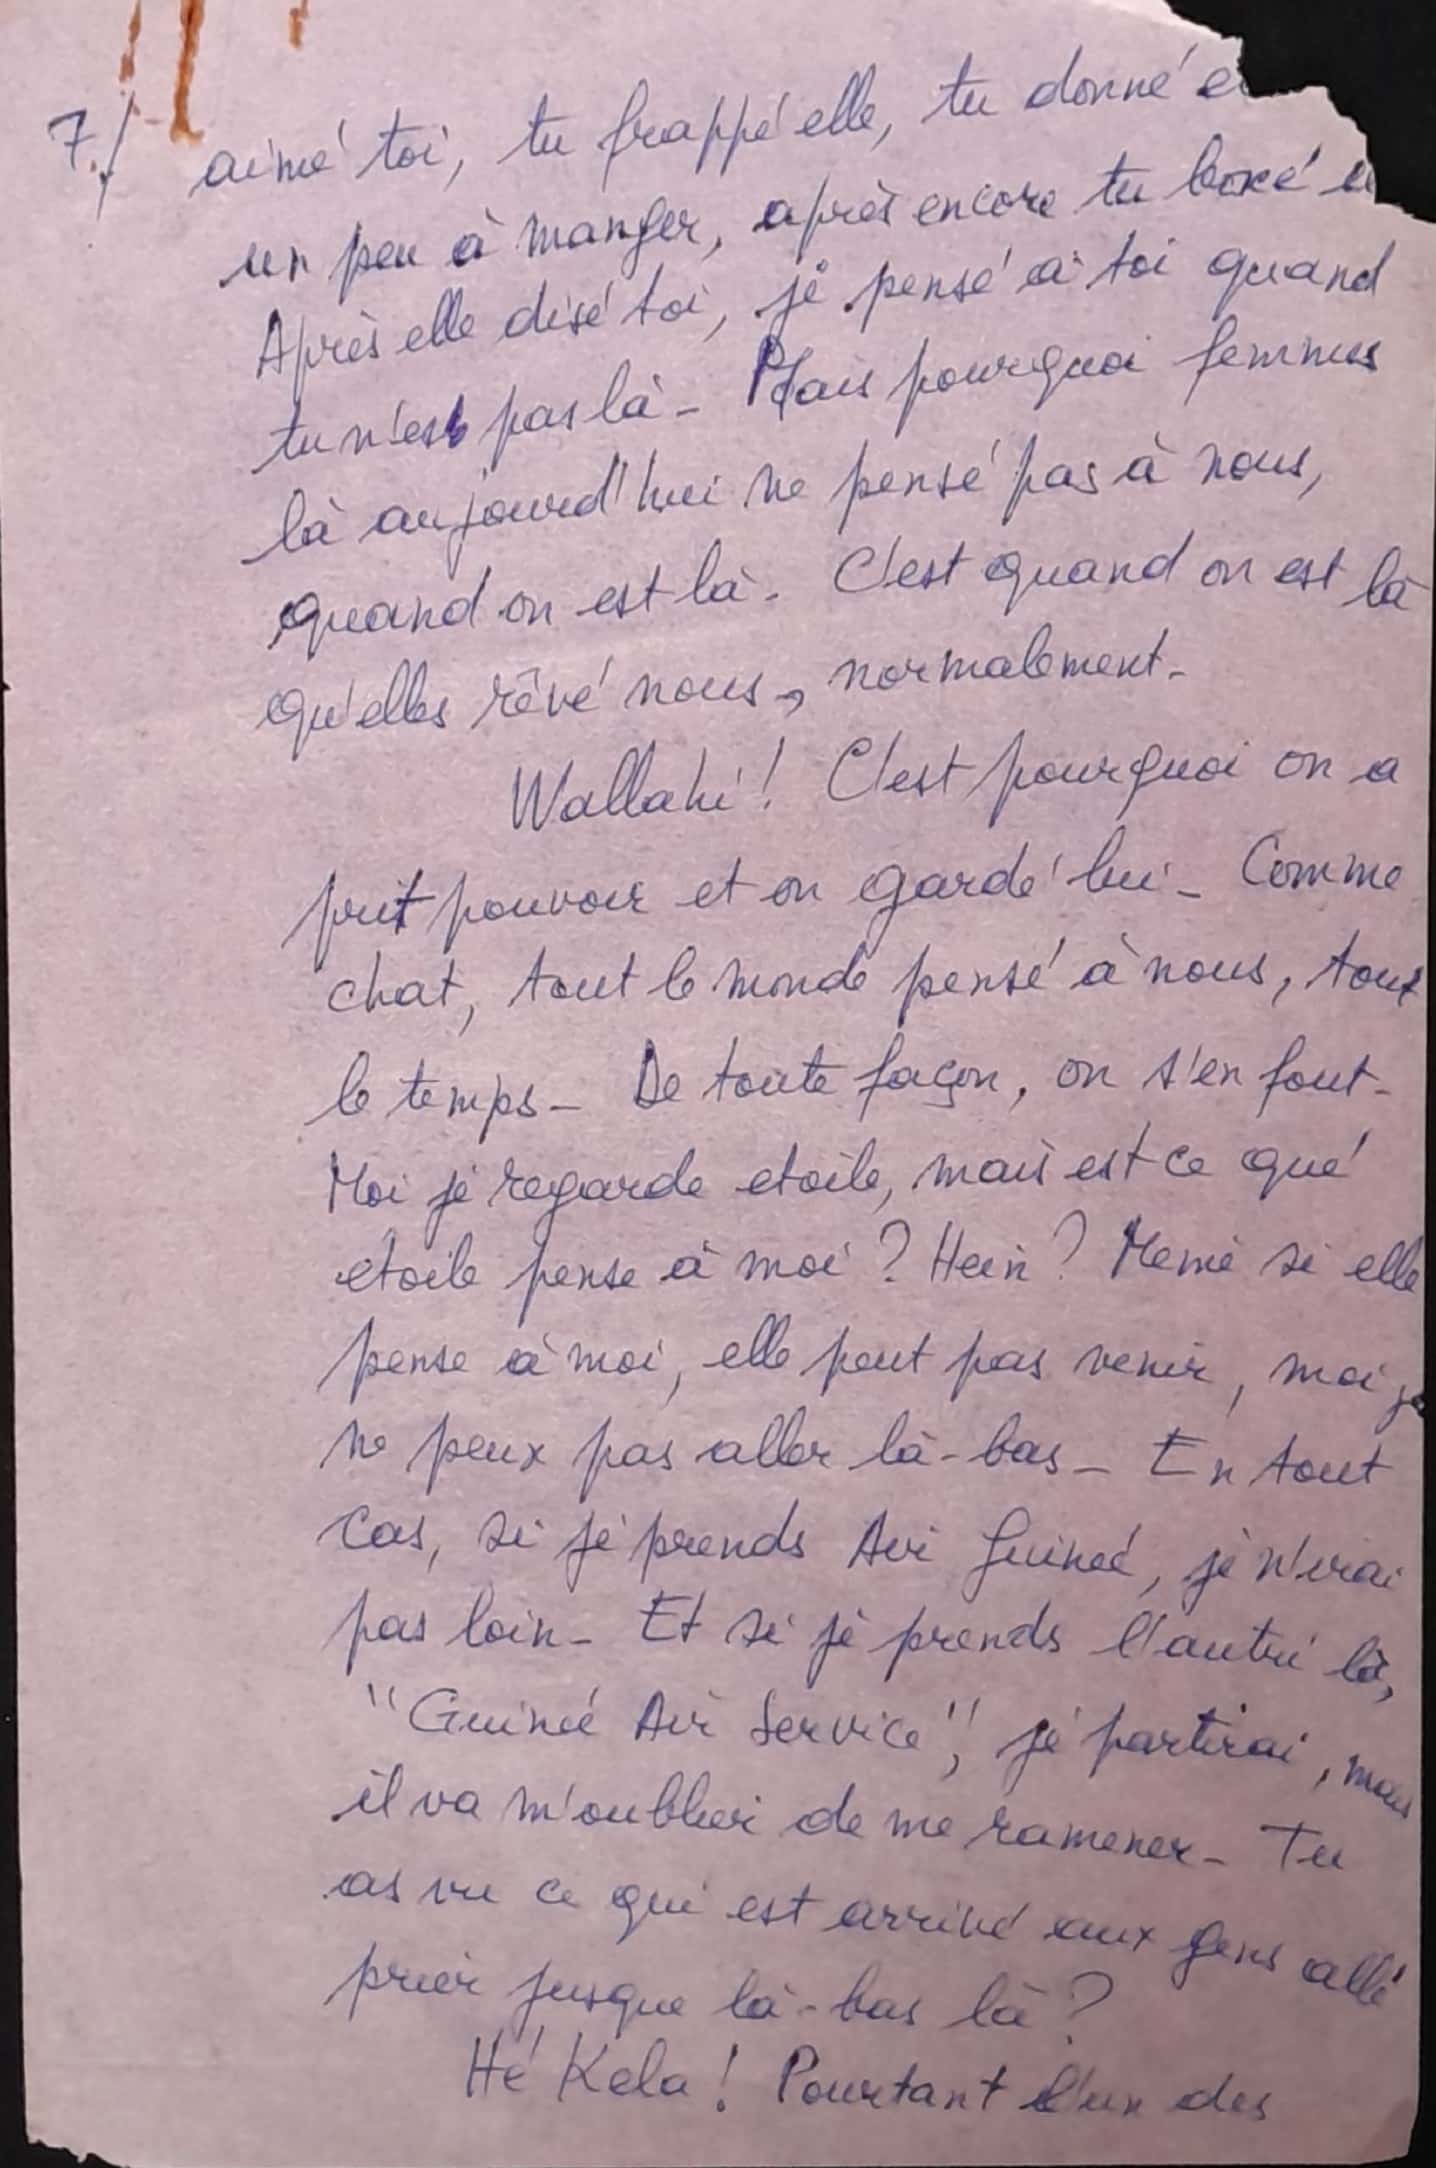 7./ aimé toi, tu frappé elle, tu donné
un peu à manger, après encore tu boxé
Après elle disé toi, jé pensé à toi quand
tu n'est pas là - Mais pourquoi femmes
là aujourd'hui ne pensé pas à nous,
quand on est là - C'est quand on est là
qu'elles rêvé nous -, normalement -
Wallahi! C'est pourquoi on a
prit pouvoir et on gardé lui - Comme
chat, tout le monde pensé à nous, tout
le temps - De toute façon, on s'en fout -
Moi jé regarde etoile, mais est ce qué
etoile pense à moi? Hein? Memé si elle
pense à moi, elle peut pas venir, moi je
ne peux pas aller là-bas - En tout
cas, si jé prends Air Guineé, jé n'irai
pas loin - Et si jé prends l'autré là,
"Guineé Air Service", jé partirai, mais
il va m'oublier de me ramener - Tu
as vu ce qui est arrivé aux gens allé
prier jusque là-bas là?
Hé Kela! Pourtant l'un des